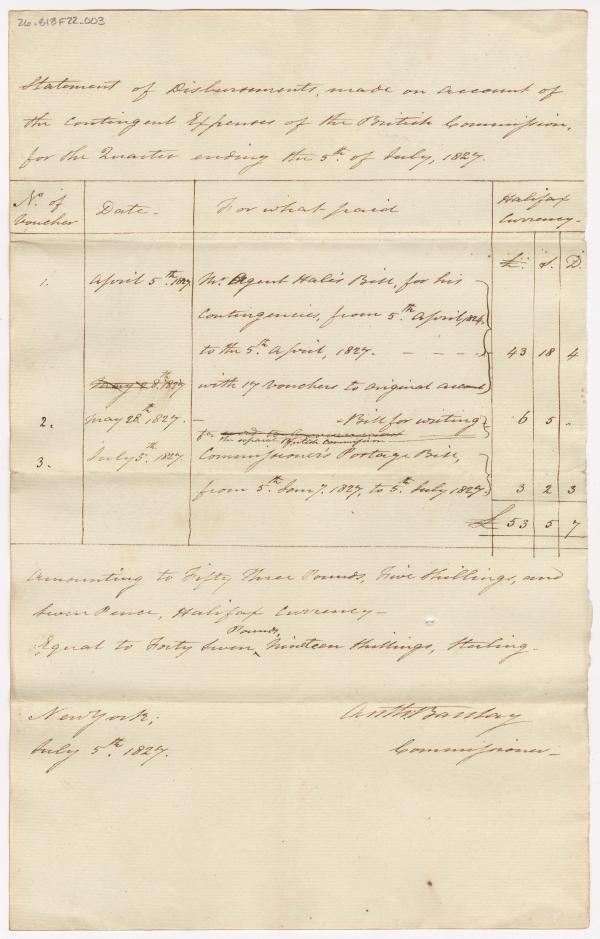 26-818F22-003
Statement of Disbursements, made on account of
the Contingent Expenses of the British Commission,
for the Quarter ending the 5th. of July, 1827.
No. of Voucher
Date-
For what paid
Halifax Currency-
£. S. D.
1. April 5th. 1827 Mr. Agent Hale's Bill, for his
Contingencies, from 5th. April, 1826.
to the 5th. April, 1827. - - - - 43 18 4
May 28th. 1827 with 17 vouchers to original account
2. May 28th. 1827. - - Bill for writing 6 5 "
for
the separate British Commission
3. July 5th. 1827 Commissioner's Postage Bill,
from 5th. Jany. 1827, to 5th. July 1827 3 2 3
£ 53 5 7
Amounting to Fifty Three Pounds, Five Shillings, and
Seven Pence, Halifax Currency-
Equal to Forty Seven Pounds, Nineteen Shillings, Sterling.
New York;
July 5th. 1827.
Anth. Barclay
Commissioner-